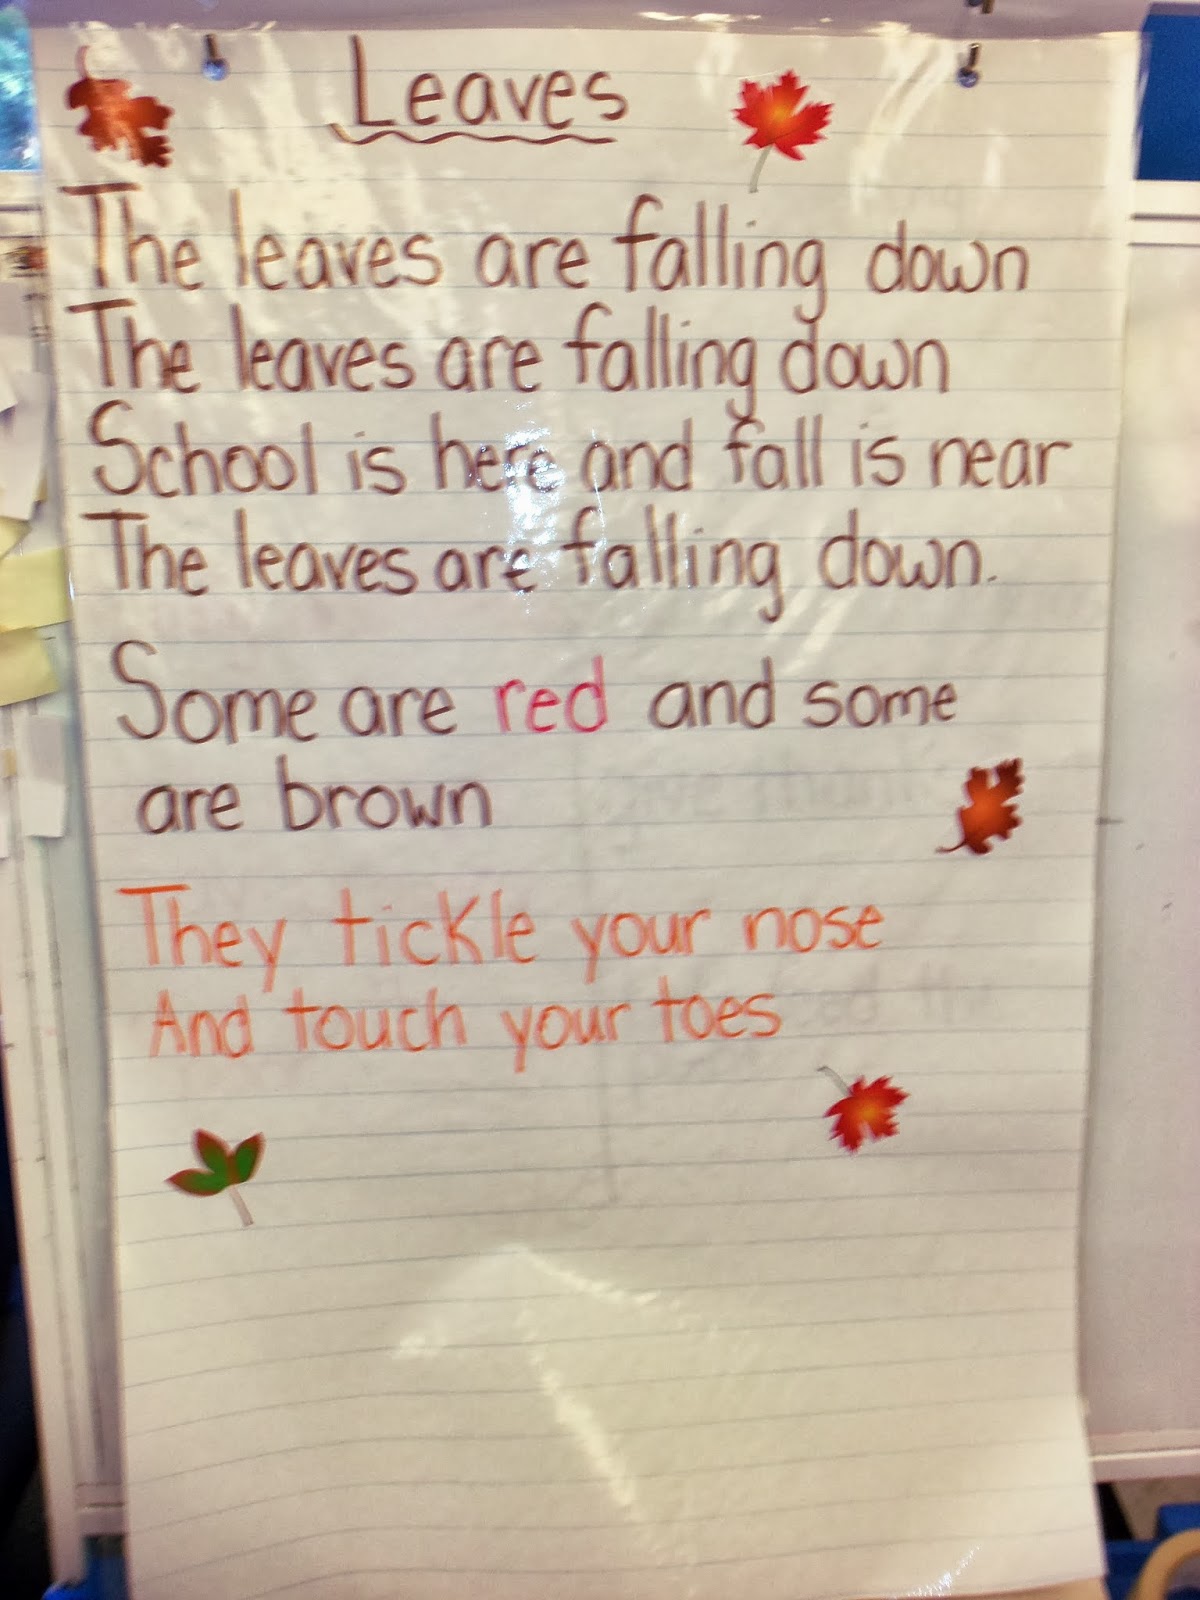 Leaves
The leaves are falling down
The leaves are falling down
School is here and fall is near
The leaves are falling down.
Some are red and some
are brown
They tickle your nose
And touch your toes